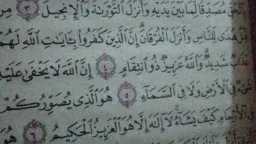 مُصَدِّقًا لِّمَا بَيْنَ يَدَيْهِ وَأَنزَلَ التَّوْرَىٰةَ وَالْإِنجِيلَ ٣ مِن
هُدًى لِّلنَّاسِ وَأَنزَلَ الْفُرْقَانَ إِنَّ الَّذِينَ كَفَرُوا بِـَٔايَٰتِ اللَّهِ لَهُمْ
شَدِيدٌ وَاللَّهُ عَزِيزٌ ذُو انتِقَامٍ ٤ إِنَّ اللَّهَ لَا يَخْفَىٰ عَلَيْهِ
فِي الْأَرْضِ وَلَا فِي السَّمَآءِ ٥ هُوَ الَّذِي يُصَوِّرُكُمْ
الْأَرْحَامِ كَيْفَ يَشَآءُ لَآ إِلَٰهَ إِلَّا هُوَ الْعَزِيزُ الْحَكِيمُ ٦ هُوَ